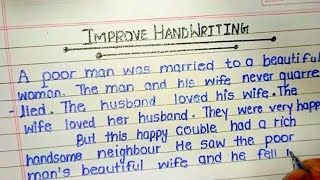 IMPROVE HANDWRITING
A poor man was married to a beautiful
woman. The man and his wife never quarre
-lled. The husband loved his wife. The
wife loved her husband. They were very happy
But this happy couble had a rich
handsome neighbour He saw the poor
man's beautiful wife and he fell